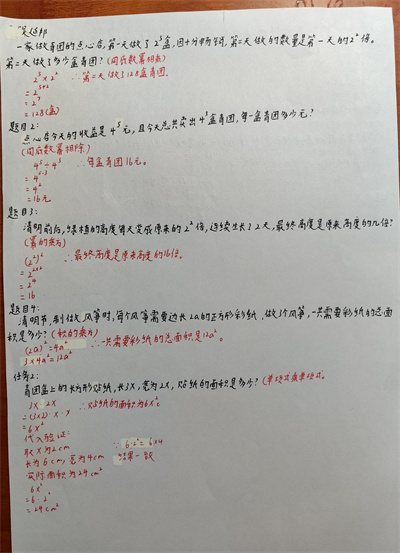 一家做青团的点心店,第一天做了2⁵盒,因十分畅销,第二天做的数量是第一天的2²倍。
第二天做了多少盒青团?(同底数幂相乘)
2⁵×2² ∴第二天做了128盒青团.
=2⁵⁺²
=2⁷
=128(盒)
题目2:
点心店今天的收益是4⁵元,且今天总共卖出4³盒青团,每一盒青团多少元?
(同底数幂相除)
4⁵÷4³ ∴每盒青团16元。
=4⁵⁻³
=4²
=16元
题目3:
清明前后,绿植的高度每天变成原来的2²倍,连续生长了2天,最终高度是原来高度的几倍?
(幂的乘方)
(2²)² ∴最终高度是原来高度的16倍。
=2²ˣ²
=2⁴
=16
题目4:
清明节,制做风筝时,每个风筝需要边长2a的正方形彩纸,做3个风筝,一共需要彩纸的总面
积是多少?(积的乘方)
(2a)²=4a² ∴一共需要彩纸的总面积是12a²。
3×4a²=12a²
任务2:
青团盒上的长方形贴纸,长3X,宽为2X,贴纸的面积是多少?(单项式乘单项式)
3X·2X ∴贴纸的面积为6X²。
=(3×2)·X·X
=6X²
代入验证:
取X为2cm ∵6·2²=6×4
长为6cm,宽为4cm 结果一致
实际面积为24cm²
6X²
=6·2²
=24cm²